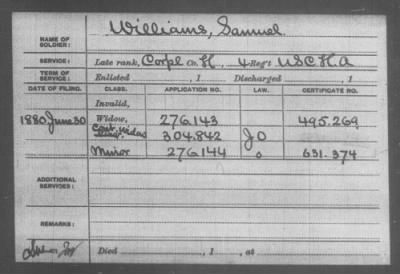 Williams, Samuel
NAME OF SOLDIER:
SERVICE: Late rank, Corpl Co. H, 4 Reg't USC H A
TERM OF SERVICE: Enlisted , 1 Discharged , 1
DATE OF FILING. CLASS. APPLICATION NO. LAW. CERTIFICATE NO.
Invalid,
1880 June 30 Widow, 276.143 495.269
Cont. Wid 304.842 J O
Minor 276144 o 631.374
ADDITIONAL SERVICES:
REMARKS:
Died , 1 , at